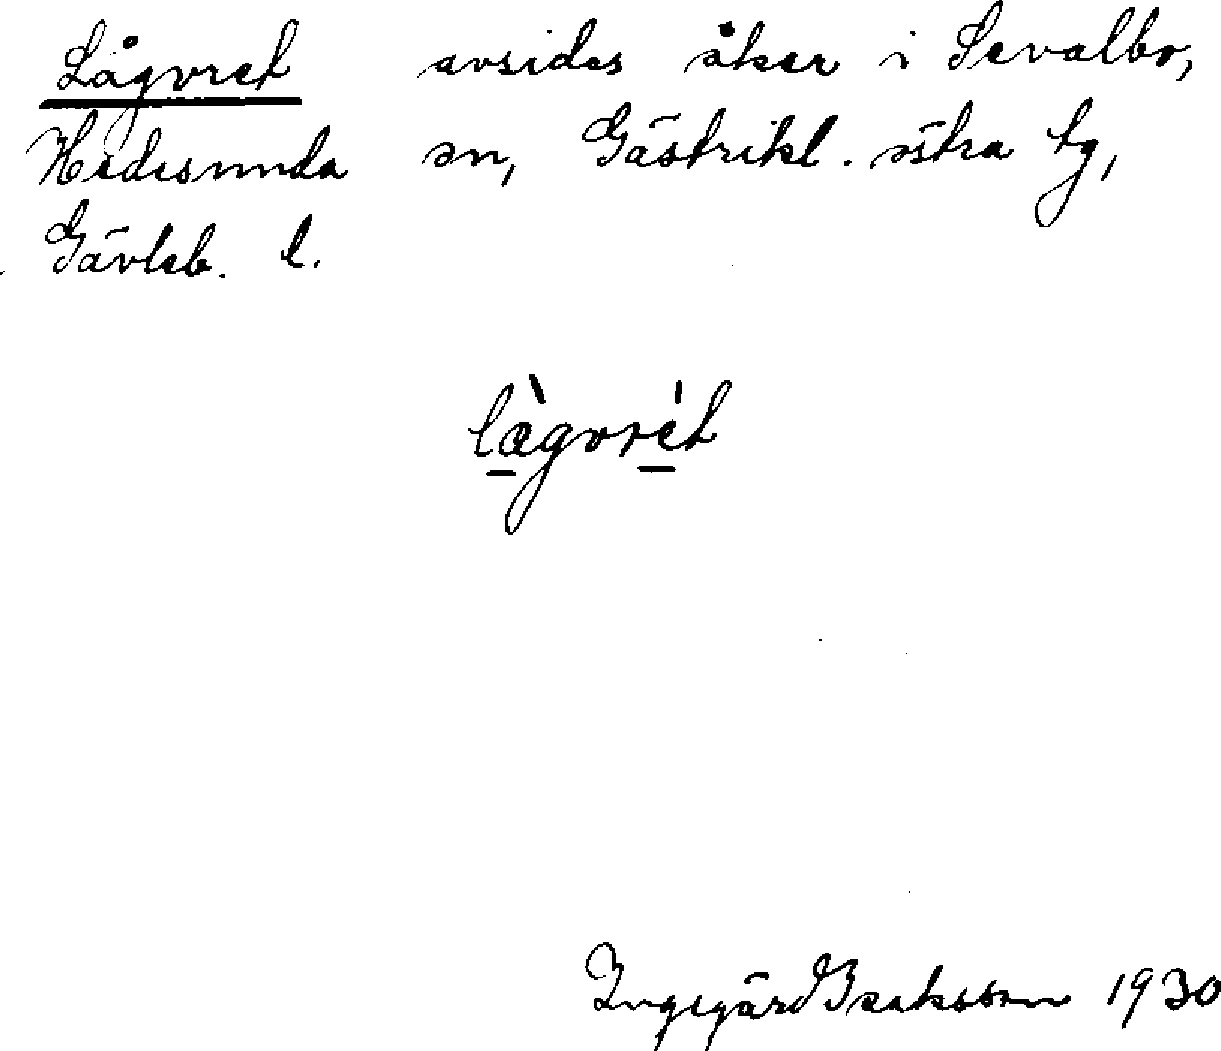 Lågvret avsides åker i Sevalbo,
Hedesunda sn, Gästrikl. östra tg,
Gävleb. l.
lågvret
Ingegärd Isaksson 1930